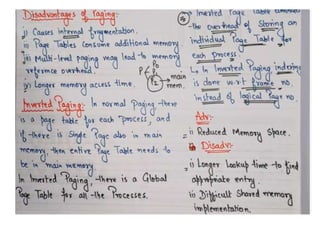 Disadvantages of Paging:-
i) Causes internal fragmentation.
ii) Page Tables consume additional memory
iii) Multi-level paging may lead to memory
reference overhead.
iv) Longer memory access time.
Inverted Paging:- In normal Paging there
is a page table for each process, and
if there is single Page also in main
memory then entire Page Table needs to
be in main memory.
In Inverted Paging, there is a Global
Page Table for all the Processes.
P
main
mem.
Inverted Page Table
the overhead of Storing an
Individual Page Table for
each process
In Inverted Paging indexing
is done w.r.t frame no.
instead of logical Page no.
Adv:-
i) Reduced Memory Space.
Disadv:-
i) Longer Lookup time to find
appropriate entry.
ii) Difficult Shared memory
implementation.